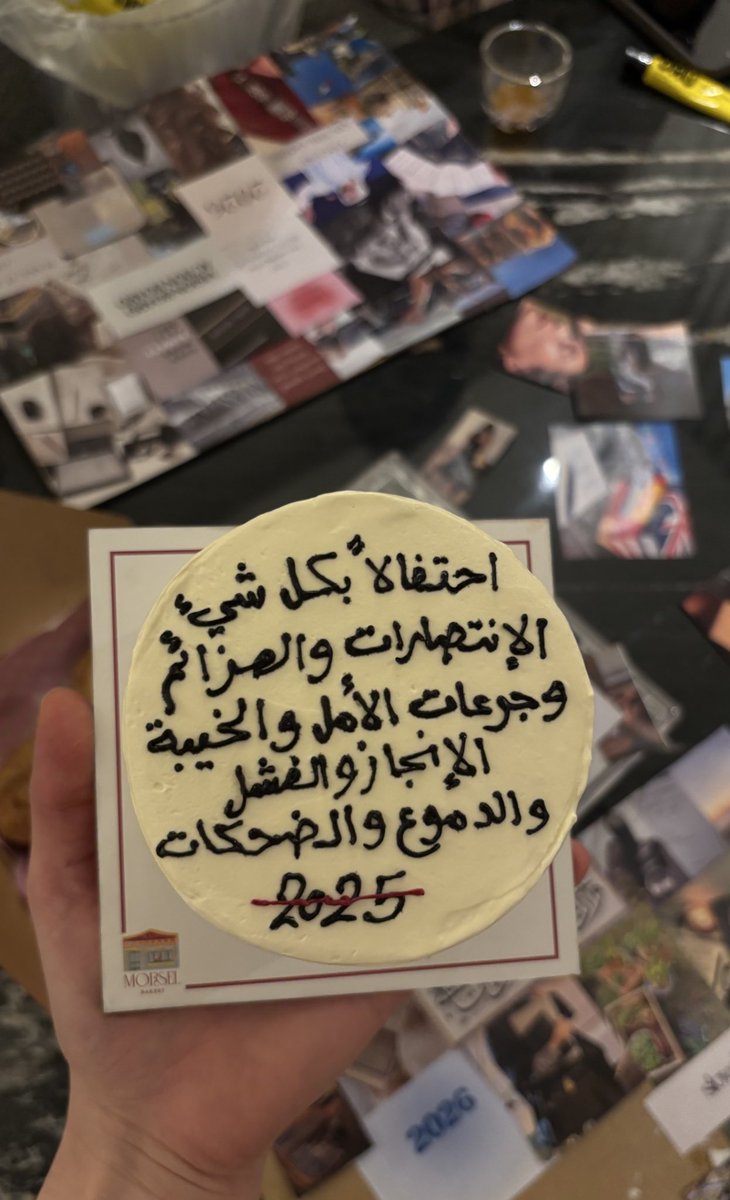 احتفالاً بكل شيئ
الإنتصارات والهزائم
وجرعات الأمل والخيبة
الإنجاز والفشل
والدموع والضحكات
2025
MORSEL
BAKERY
2026